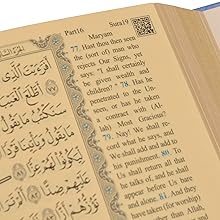 Part16 Sura19
Maryam
77. Hast thou then seen
the (sort of) man who
rejects Our Signs, yet
says: "I shall certainly
be given wealth and
children?" 78. Has he
penetrated to the Un-
seen, or has he taken
a contract with (Al-
lah) Most Gracious?
79. Nay! We shall re-
cord what he says, and
We shall add and add to
his punishment. 80. To
Us shall return, all that
he talks of, and he shall
appear before Us bare
and alone. 81. And they
have taken (for
أَفَرَءَيْتَ ٱلَّذِى
أَطَّلَعَ ٱلْغَيْبَ
سَنَكْتُبُ مَا يَقُولُ
مَا يَقُولُ
لِّيَكُونُوا۟ لَهُمْ عِزًّا
عَلَيْهِمْ ضِدًّا